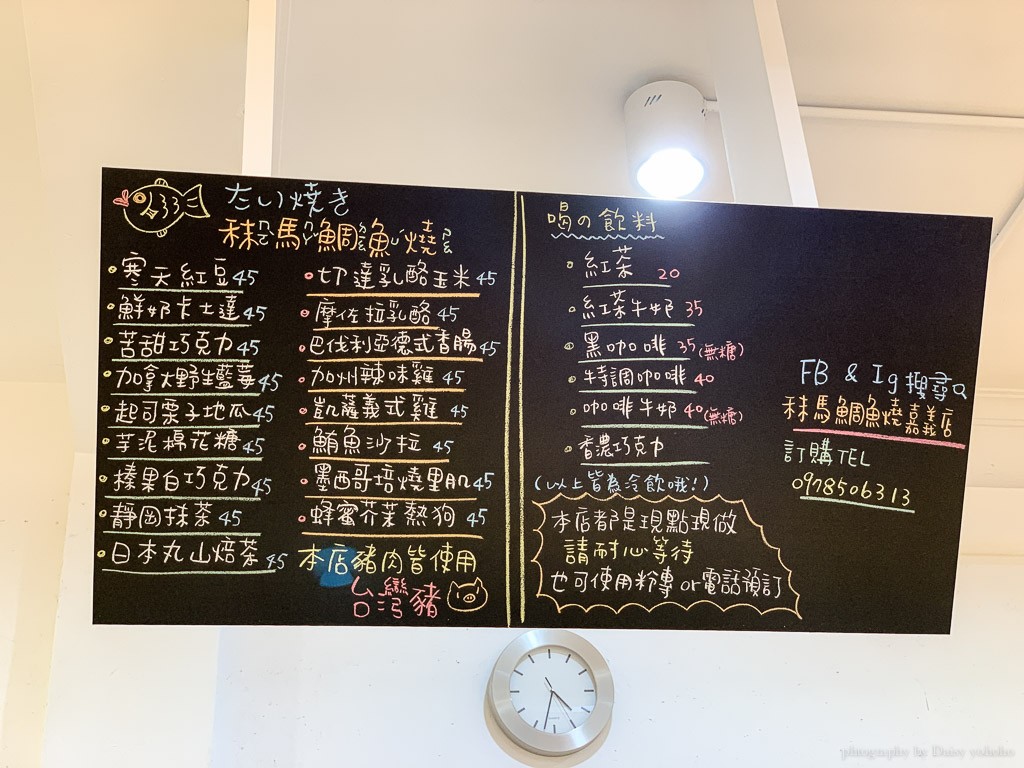 たい燒き
秣馬鯛魚燒
寒天紅豆 45
鮮奶卡士達 45
苦甜巧克力 45
加拿大野生藍莓 45
起司栗子地瓜 45
芋泥棉花糖 45
榛果白巧克力 45
靜岡抹茶 45
日本丸山焙茶 45
切達乳酪玉米 45
摩佐拉乳酪 45
巴伐利亞德式香腸 45
加州辣味雞 45
凱薩義式雞 45
鮪魚沙拉 45
墨西哥培燒里肌 45
蜂蜜芥茉熱狗 45
本店豬肉皆使用
台灣豬
喝の飲料
紅茶 20
紅茶牛奶 35
黑咖啡 35(無糖)
特調咖啡 40
咖啡牛奶 40(無糖)
香濃巧克力
(以上皆為冷飲哦!)
本店都是現點現做
請耐心等待
也可使用粉專or電話預訂
FB & Ig搜尋
秣馬鯛魚燒嘉義店
訂購TEL
0978506313
photography by Daisy yohoho